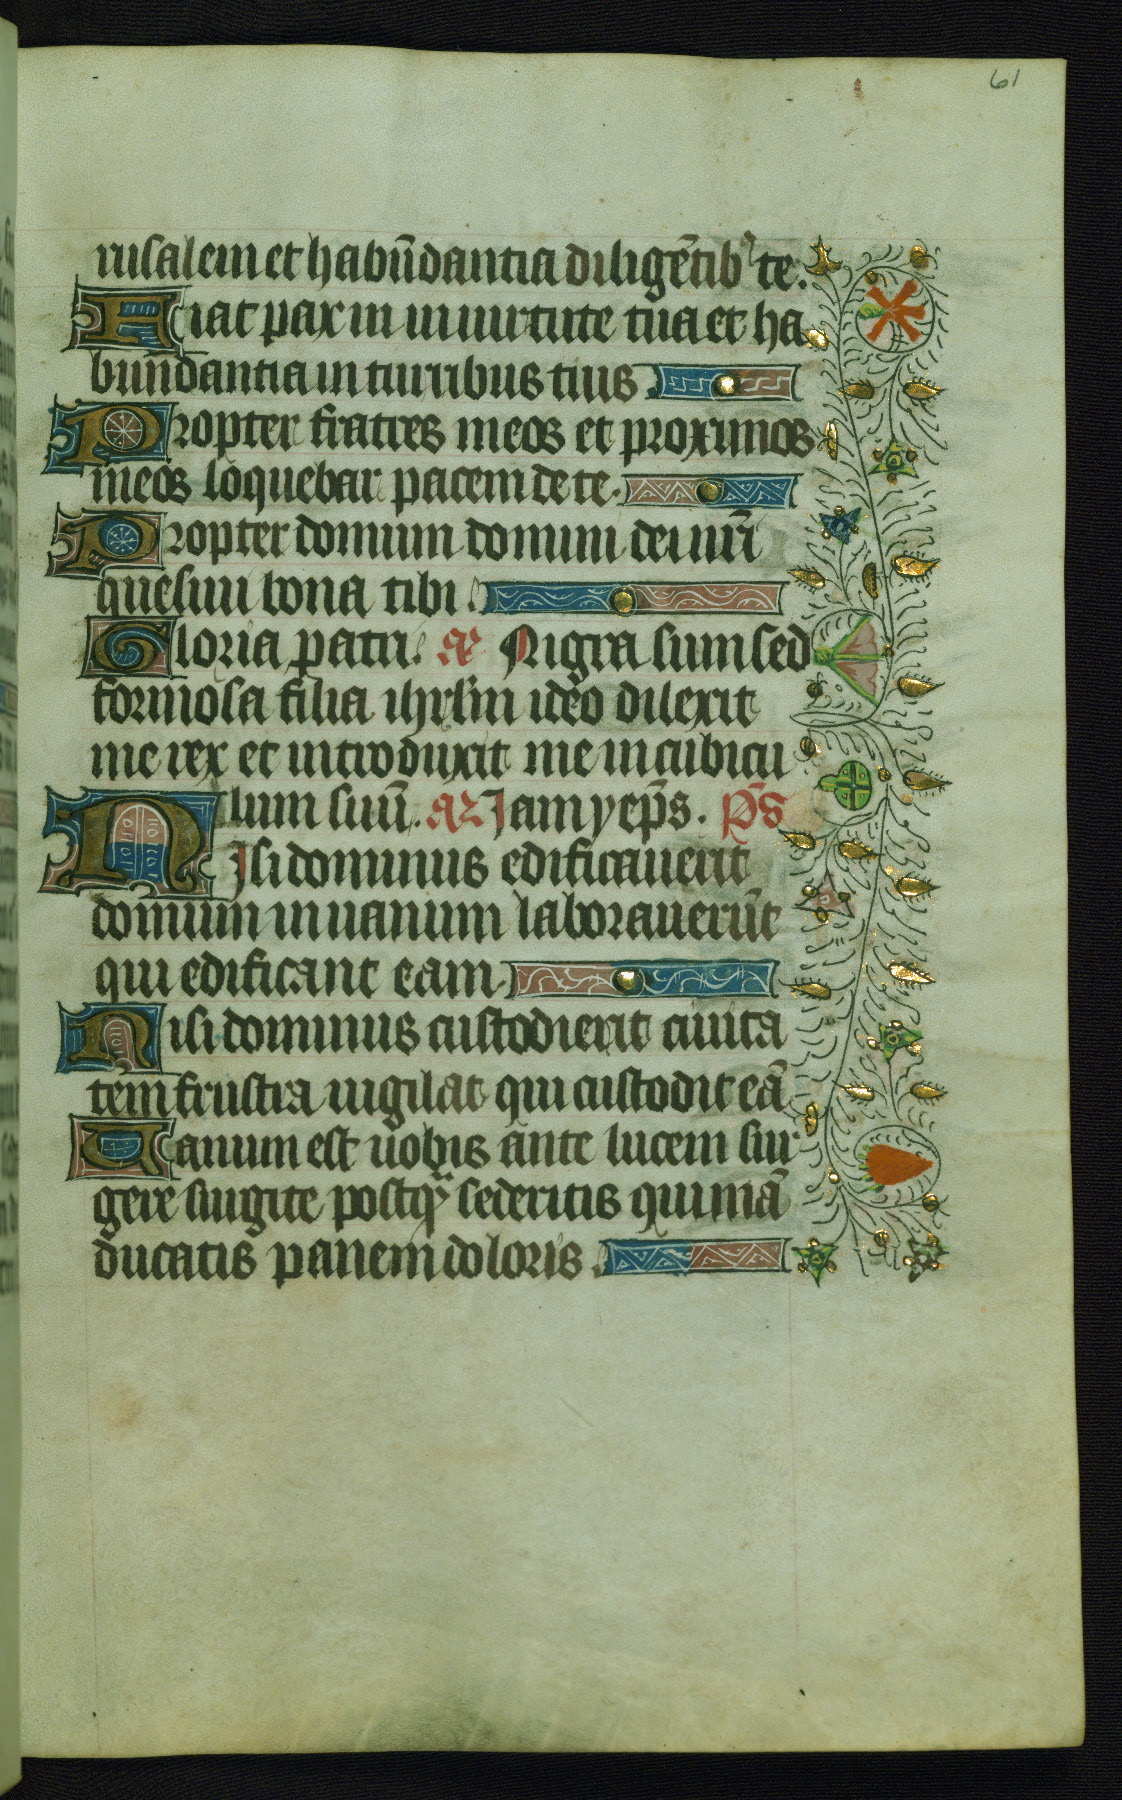 61
rusalem et habūdantia diligētibꝰ te.
Fiat pax in in uirtute tua et ha
bundantia in turribus tuis
Propter fratres meos et proximos
meos loquebar pacem de te.
Propter domum domini dei nr̄i
quesiui bona tibi.
Gloria patri. añ Nigra sum sed
formosa filia ihrlm̄ ideo dilexit
me rex et introduxit me in cubicu
lum suū. añ Jam yēps. p̄s
Nisi dominus edificauerit
domum in uanum laborauerūt
qui edificant eam.
Nisi dominus custodierit ciuita
tem frustra uigilat qui custodit eā
Uanum est uobis ante lucem sur
gere surgite postqᵃ̄ sederitis qui mā
ducatis panem doloris